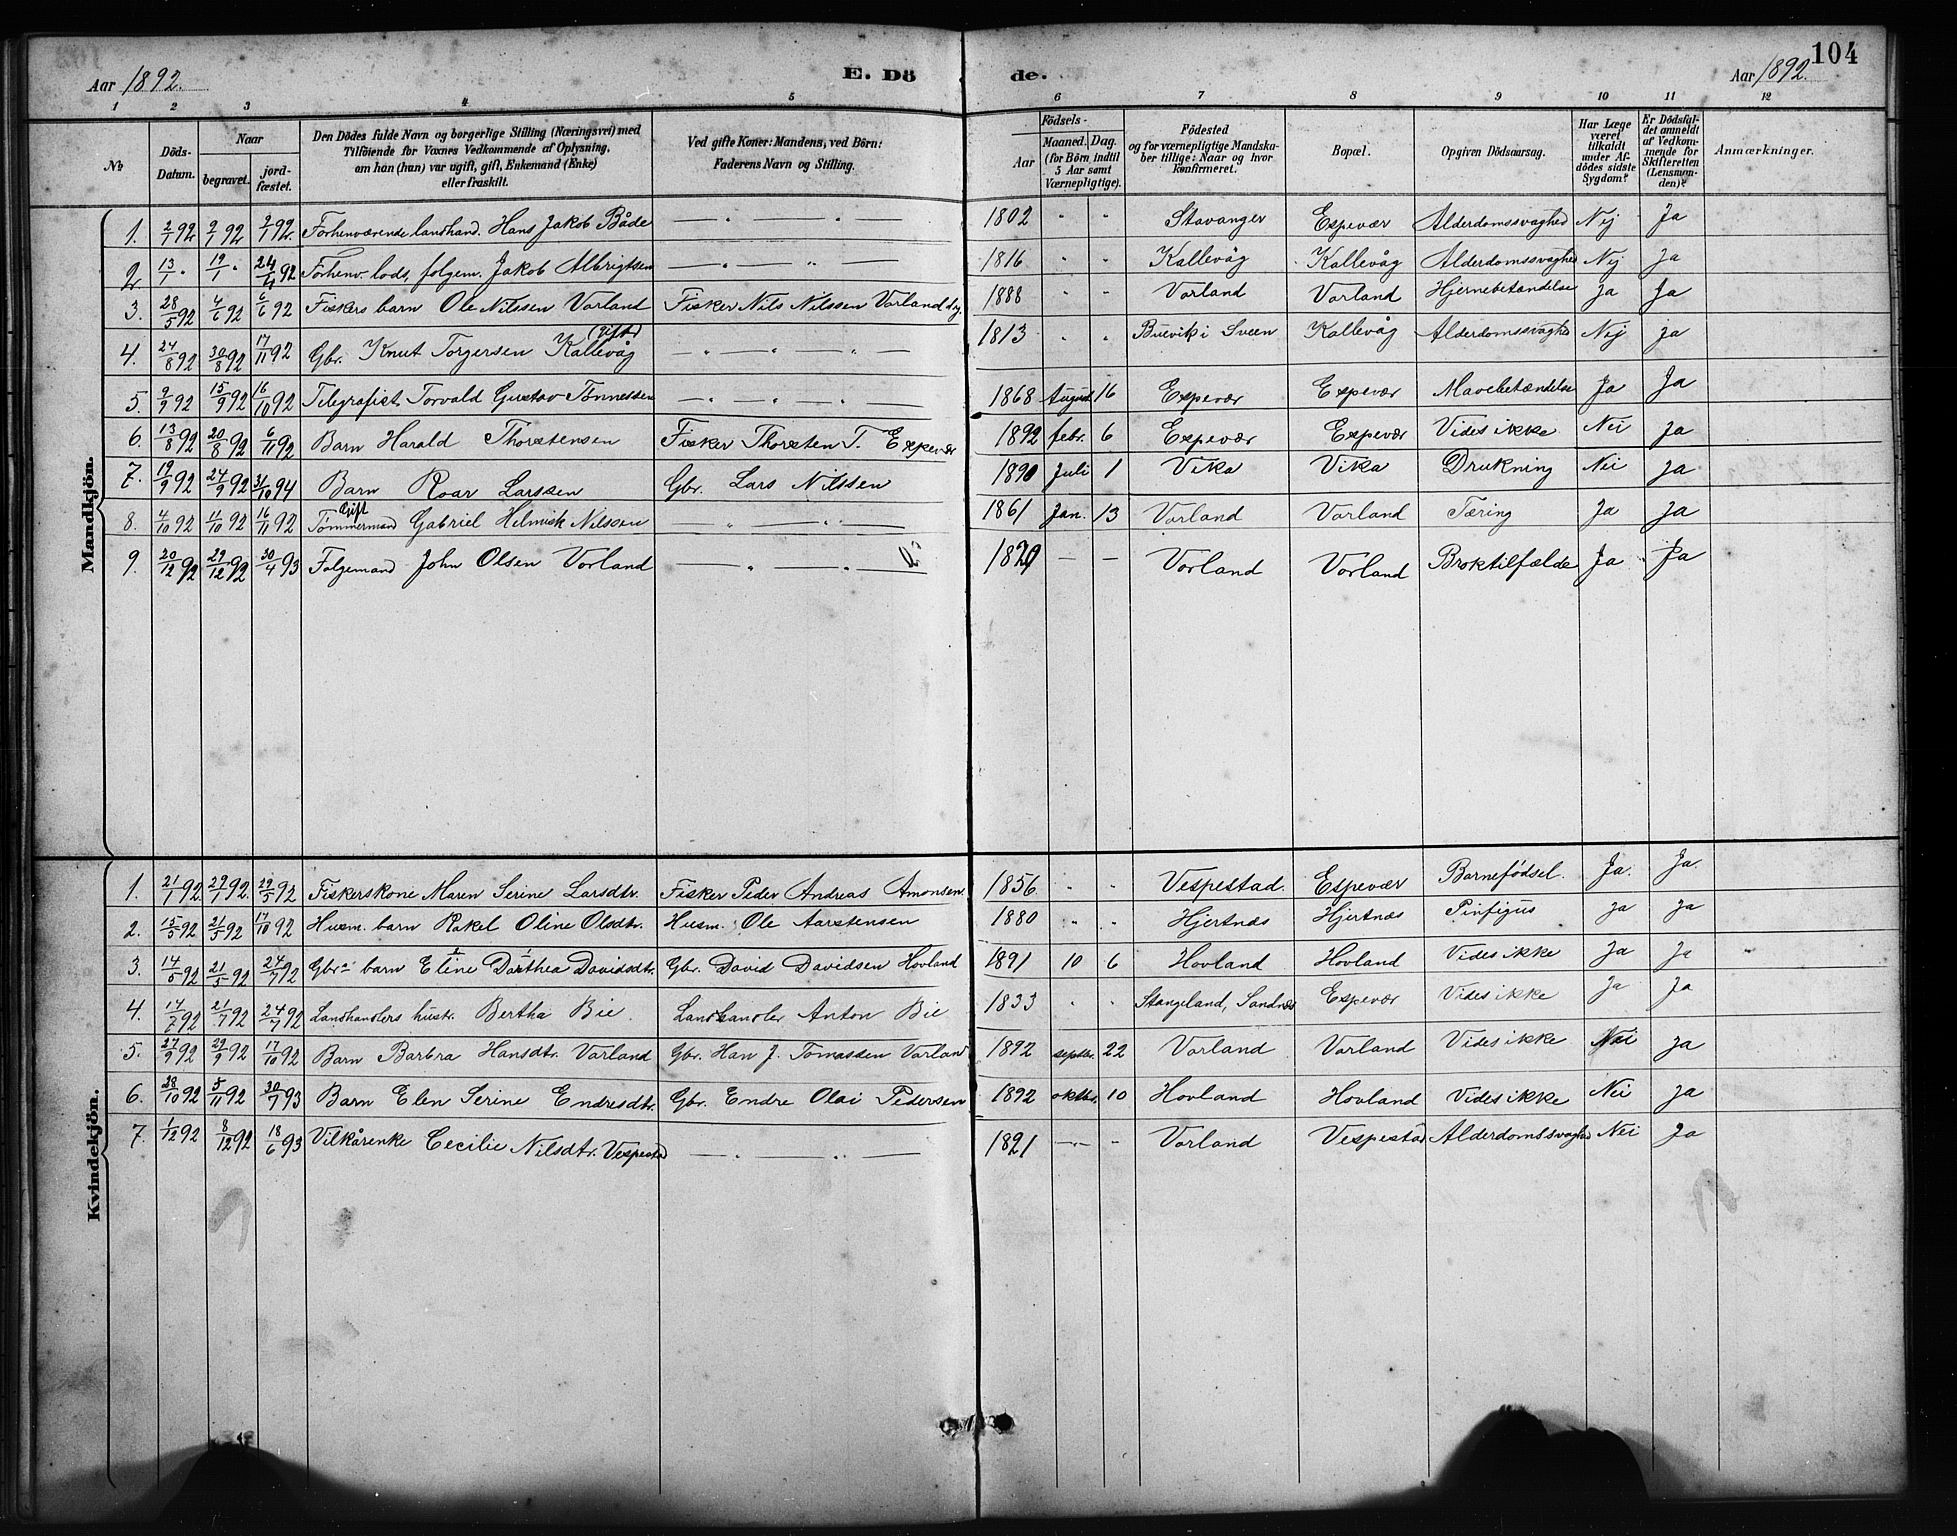 104
Aar 1892. E. Dö de. Aar 1892.
1 2 3 4 5 6 7 8 9 10 11 12
No.
Döds-Datum.
Naar
begravet.
jord-fæstet.
Den Dödes fulde Navn og borgerlige Stilling (Næringsvei) med
Tilföiende for Voxnes Vedkommende af Oplysning,
om han (hun) var ugift, gift, Enkemand (Enke)
eller fraskilt.
Ved gifte Koner: Mandens, ved Börn:
Faderens Navn og Stilling.
Födsels-
Aar
Maaned. Dag.
(for Börn indtil
5 Aar samt
Værnepligtige).
Födested
og for værnepligtige Mandska-
ber tillige: Naar og hvor
konfirmeret.
Bopæl.
Opgiven Dödsaarsag.
Har Læge
været
tilkaldt
under Af-
dödes sidste
Sygdom?
Er Dödsfal-
det anmeldt
af Vedkom-
mende for
Skifteretten
(Lensman-
den)?
Anmærkninger.
Mandkjön.
1. 2/1 92 9/1 92 9/1 92. Forhenværende landhand. Hans Jakob Både — " — " — 1802 " " Stavanger Espevær Alderdomssvaghed Nej Ja
2. 13/1 " 19/1 " 24/4 92 Forhenv. lods, folgem. Jakob Albrigtsen — " — " — 1816 " " Kallevåg Kallevåg Alderdomssvaghed Nej ja
3. 28/5 92 4/6 92 6/6 92 Fiskers barn Ole Nilssen Vorland Fisker Nils Nilssen Vorland 1888 " " Vorland Vorland Hjernebetændelse Ja Ja
4. 24/8 92 30/8 92 17/11 92 Gbr. Knut Torgersen Kallevåg (gift) — " — " — 1813 " " Buevik i Sveen Kallevåg Alderdomssvaghed Nej ja
5. 9/9 92 15/9 92 16/10 92 Telegrafist Torvald Gustav Tønnessen 1868 August 16 Espevær Espevær Mavebetændelse Ja Ja
6. 13/8 92 20/8 92 6/11 92 Barn Harald Thorstensen Fisker Thorsten T. Espevær 1892 febr. 6 Espevær Espevær Vides ikke Nei ja
7. 19/9 92 24/9 92 31/10 94 Barn Roar Larssen Gbr. Lars Nilssen 1890 Juli 1 Vika Vika Drukning Nei ja
8. 4/10 92 11/10 92 16/11 92 Gift Tømmermand Gabriel Helmich Nilssen — " — " — 1861 Jan. 13 Vorland Vorland Tæring Ja ja
9. 20/12 92 29/12 92 30/4 93 Folgemand John Olsen Vorland — " — " — 1820 — — Vorland Vorland Broktilfælde Ja Ja
Kvindekjön.
1. 21/1 92 29/1 92 29/5 92 Fiskerskone Maren Serine Larsdtr. Fisker Peder Andreas Amonsen 1856 " " Vespestad. Espevær Barnefødsel. Ja. Ja.
2. 15/5 92 21/5 92 17/10 92 Husm. barn Rakel Oline Olsdtr. Husm. Ole Aarstensen 1880 " " Hjertnæs Hjertnæs Pinfigus ja ja
3. 14/5 92 21/5 92 24/7 92 Gbr. barn Eline Dorthea Davidsdtr. Gbr. David Davidsen Hovland 1891 10 6 Hovland Hovland Vides ikke Ja Ja "
4. 14/7 92 21/7 92 24/7 92 Landhandlers hustr. Bertha Bie Landhandler Anton Bie 1833 " " Stangeland, Sandnæs Espevær Vides ikke Ja Ja
5. 27/9 92 29/9 92 17/10 92 Barn Barbra Hansdtr. Vorland Gbr. Han J. Tomassen Vorlan 1892 septbr. 22 Vorland Vorland Vides ikke Nei ja
6. 28/10 92 5/11 92 30/7 93 Barn Elen Serine Endresdtr. Gbr. Endre Olai Pedersen 1892 oktbr. 10 Hovland Hovland Vides ikke Nei ja
7. 1/12 92 8/12 92 18/6 93 Vilkårenke Cecilie Nilsdtr. Vespestad — " — " — 1821 — " — " Vorland Vespestad Alderdomssvaghed Nei Ja